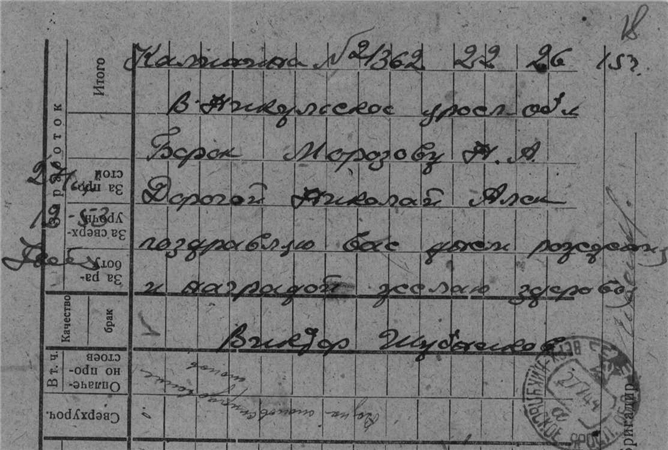 18
Калинина №2/362 22 26 15ч
В-Никульское яросл обл
Борок Морозову Н. А.
Дорогой Николай Алек
поздравлую вас днем рождения
и наградой желаю здоровь
Виктор
Итого
За про
стой
За сверх-
урочн
За ра-
боту
Качество
брак
Вт. ч.
Оплаче-
но про-
стоев
Сверхуроч.
Бригадир